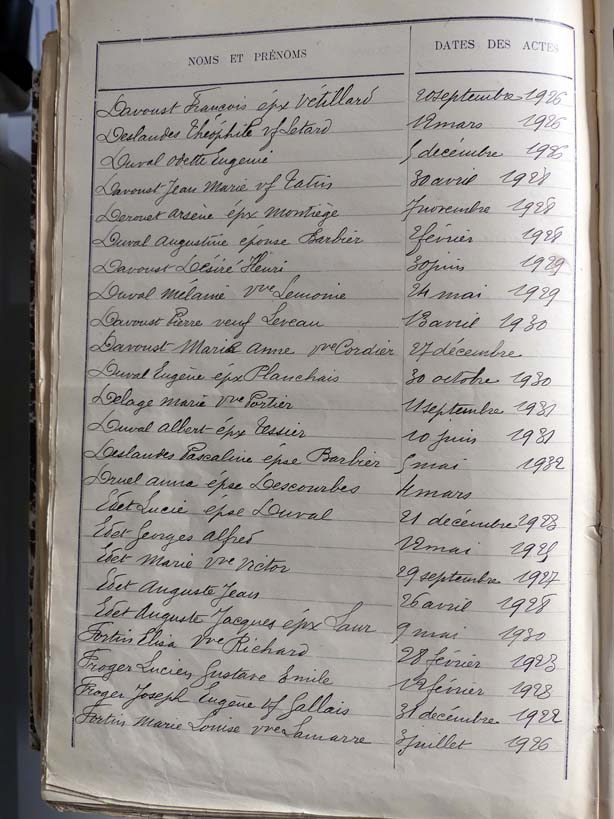 NOMS ET PRÉNOMS DATES DES ACTES
Davoust François épx Vétillard 20 septembre 1926
Deslandes Théophile vf Letard 12 mars 1926
Duval Odette Eugenie 5 décembre 1926
Davoust Jean Marie vf Tatin 30 avril 1928
Derouet Arsène épx Montiège 7 novembre 1928
Duval Augustine épouse Barbier 2 février 1928
Davoust Désiré Henri 30 juin 1929
Duval Mélanie vve Lemoine 24 mai 1929
Davoust Pierre veuf Leveau 13 avril 1930
Davoust Marie Anne vve Cordier 27 décembre
Duval Eugène épx Planchais 30 octobre 1930
Delage Marie vve Portier 11 septembre 1931
Duval Albert épx Tessier 10 juin 1931
Deslandes Pascaline épse Barbier 5 mai 1932
Druel Anna épse Descourbes 4 mars
Edet Lucie épse Duval 21 décembre 1923
Edet Georges Alfred 12 mai 1925
Edet Marie vve Victor 29 septembre 1927
Edet Auguste Jean 26 avril 1928
Edet Auguste Jacques épx Laur 9 mai 1930
Fortin Elisa vve Richard 28 février 1923
Froger Lucien Gustave Emile 12 février 1923
Froger Joseph Eugène vf Gallais 31 décembre 1922
Fortin Marie Louise vve Lamarre 3 juillet 1926